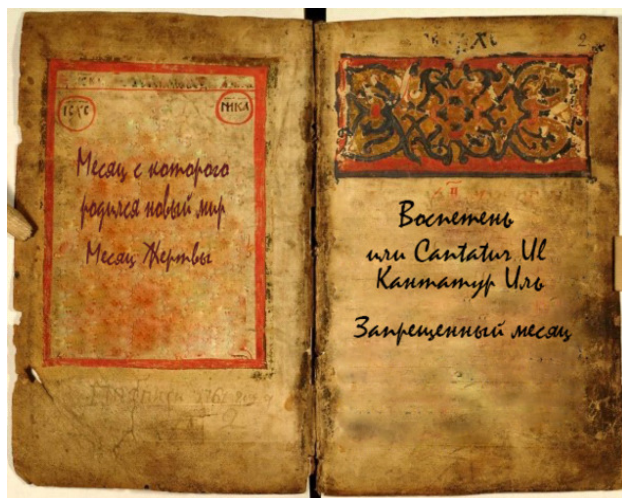 ІС ХС
НИКА
Месяц с которого
родился новый мир
Месяц Жертвы
2
Воспетень
или Cantatur Ul
Кантатур Иль
Запрещенный месяц